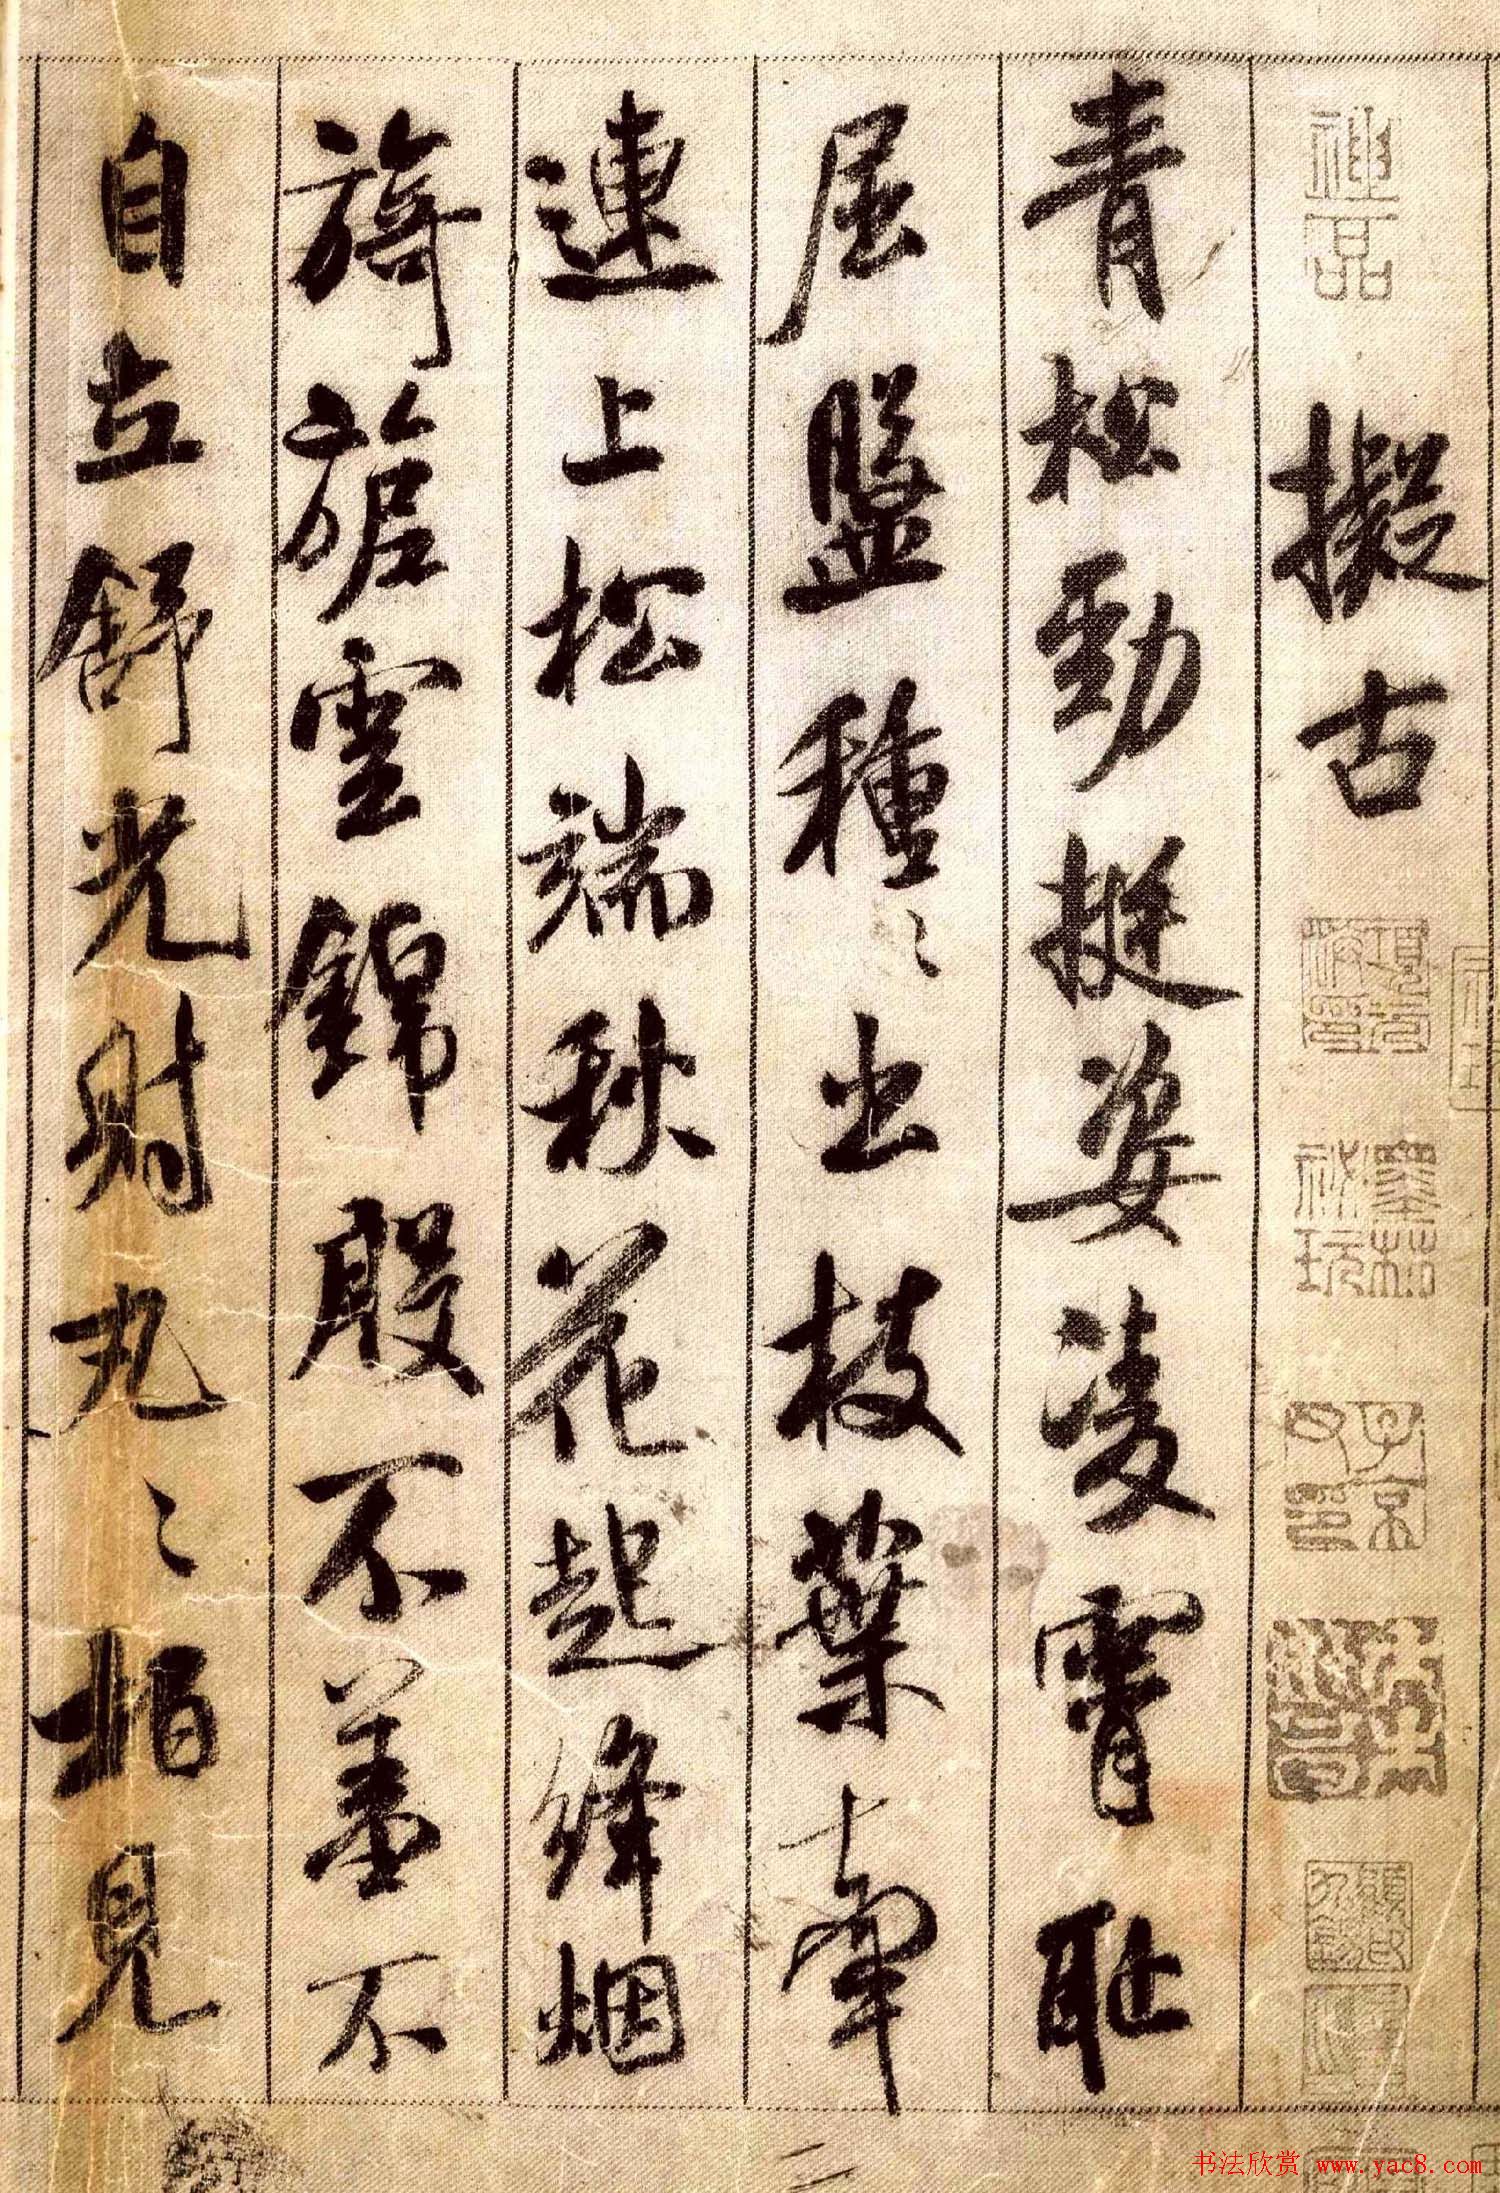 擬古
青松勁挺姿凌霄恥
屈盤種〻出枝葉牽
連上松端秋花起絳烟
旖旎雲錦殷不羞不
自立舒光射丸〻柏見
子京
書法欣赏 www.yac8.com